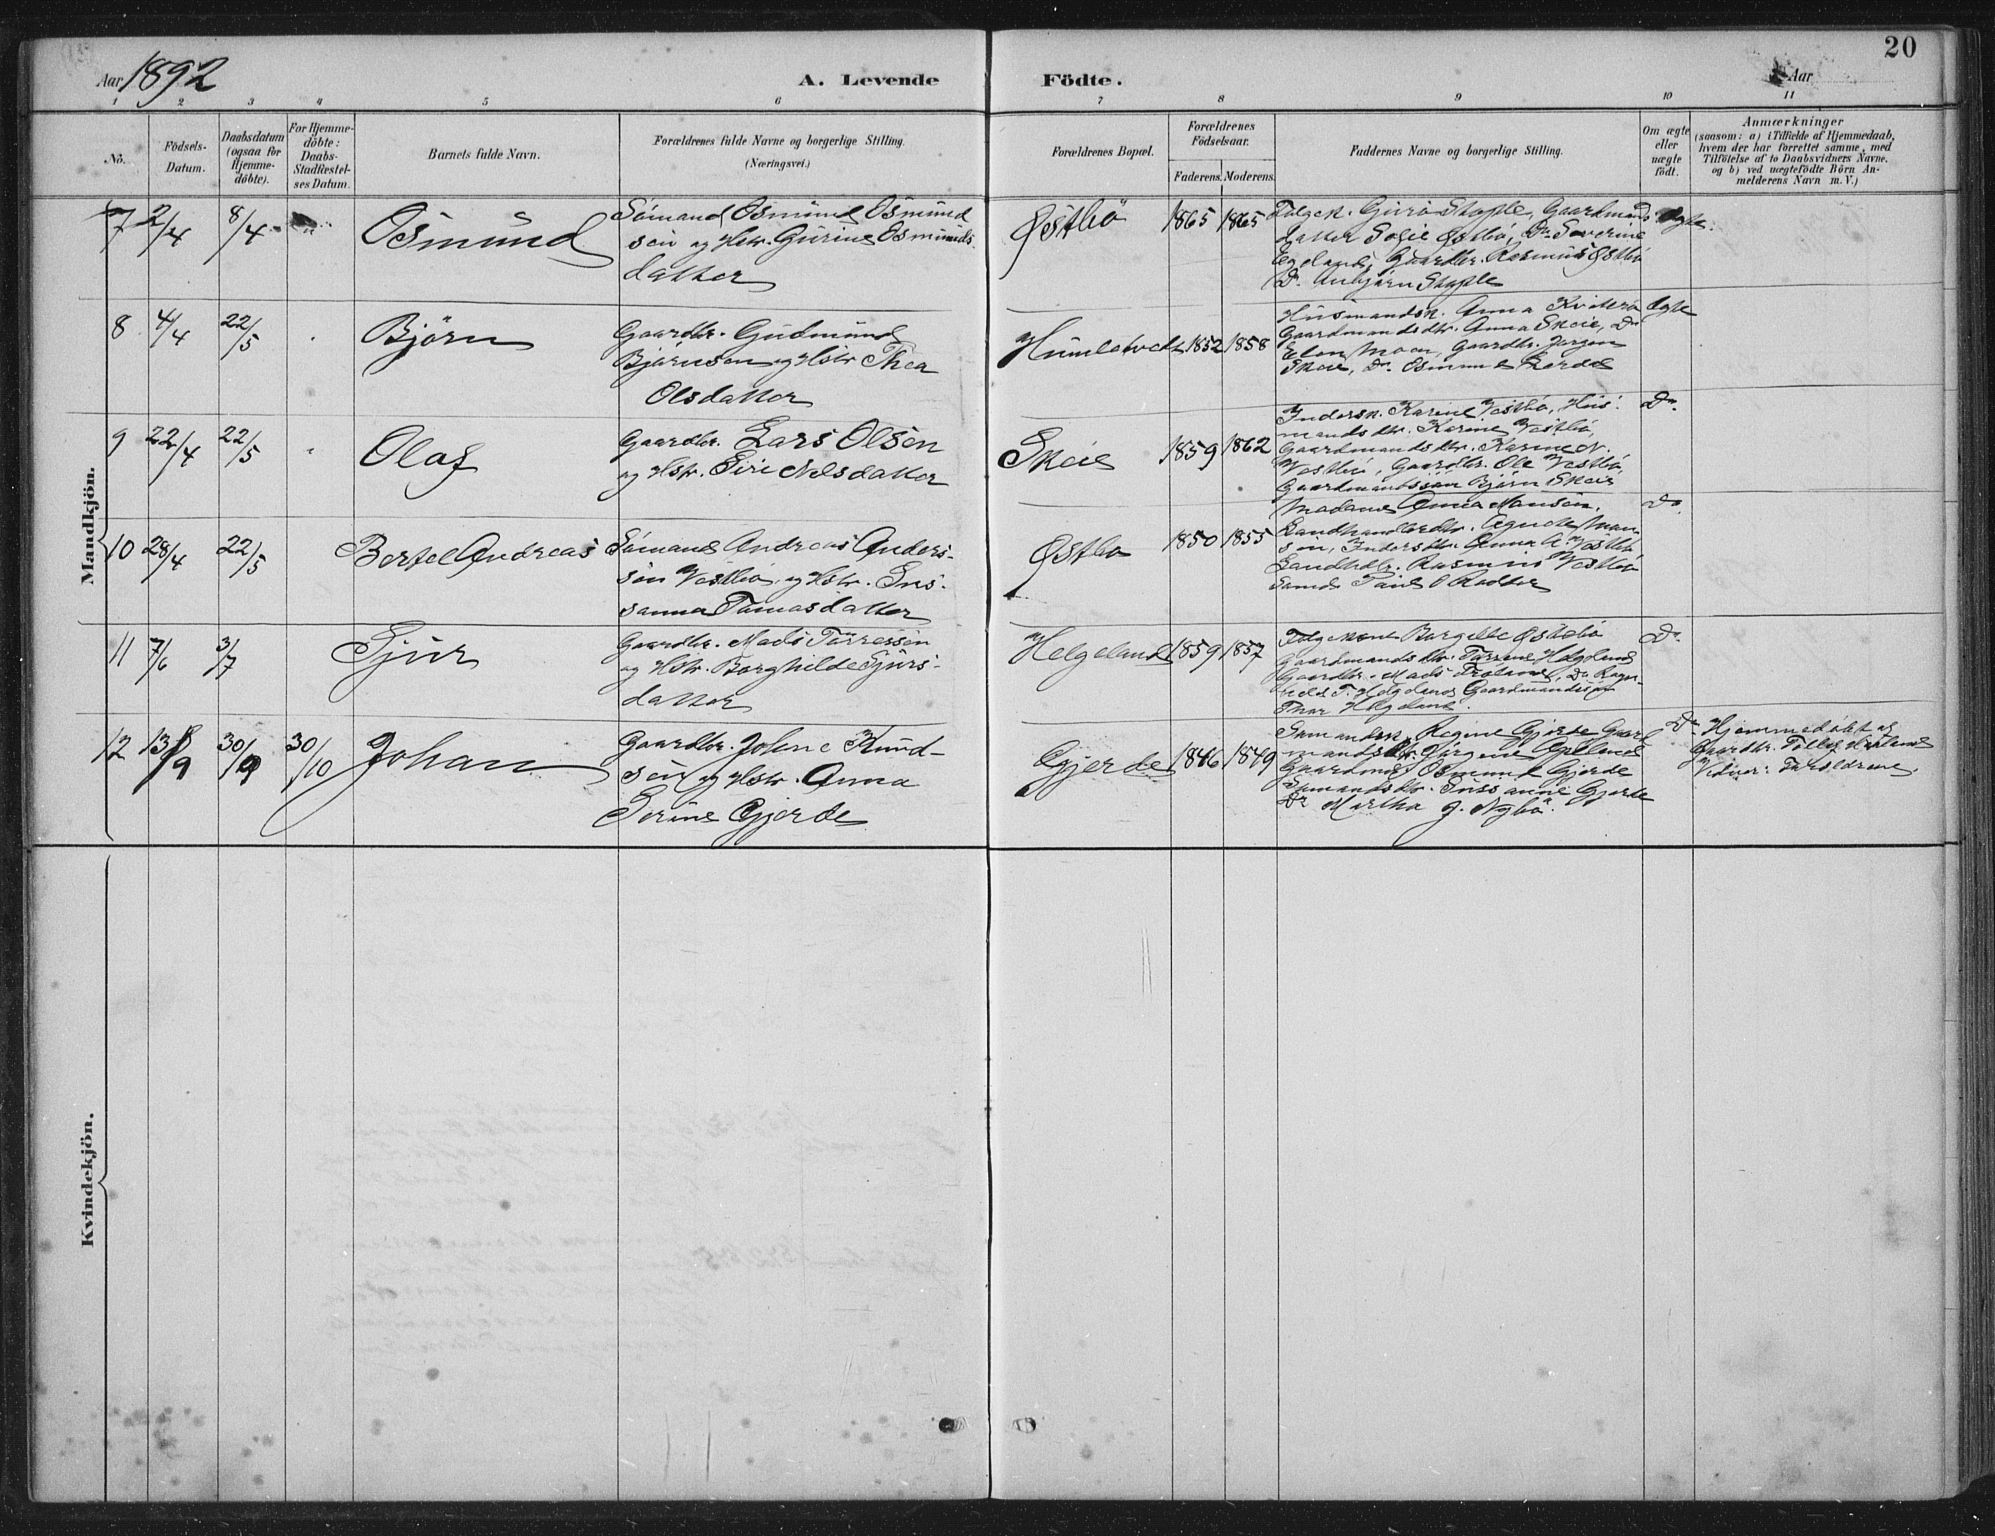 20
Aar 1892
A. Levende Födte.
Aar
1 2 3 4 5 6 7 8 9 10 11
No.
Födsels-
Datum.
Daabsdatum
(ogsaa for
Hjemme-
döbte).
For Hjemme-
döbte:
Daabs-
Stadfæstel-
ses Datum.
Barnets fulde Navn.
Forældrenes fulde Navne og borgerlige Stilling.
(Næringsvei.)
Forældrenes Bopæl.
Forældrenes
Födselsaar.
Faderens. Moderens.
Faddernes Navne og borgerlige Stilling.
Om ægte
eller
uægte
födt.
Anmærkninger
(saasom: a) i Tilfælde af Hjemmedaab,
hvem der har forrettet samme, med
Tilföielse af to Daabsvidners Navne,
og b) ved uægtefödte Börn An-
melderens Navn m. V.)
Mandkjön.
7 2/4 8/4 Osmund
Sömand Osmund Osmund
sen og Hstr. Gurine Osmunds
datter
Østbö 1865 1865
Guro Stople, Gaardmands
datter Sofie Østbö, Do Severine
Egeland, Gaardbr. Rasmus Østbö
Do. Stople
Ægte.
8 4/4 22/5 Björn
Gaardbr. Gudmund
Björnsen og Hstr. Thea
Olsdatter
Humletvedt 1852 1858
Husmandsk. Anna
Gaardmandsdtr. Anna Skeie, Do
Moen, Gaardbr. Jørgen
Skeie, Do.
Ægte
9 22/4 22/5 Olaf
Gaardbr. Lars Olsen
og Hstr. Siri Nilsdatter
Skeie 1859 1862
Inderstk. Karine Vestbö, Hus-
mandsdtr. Karine Vestbö,
Gaardmandsdtr. Karine N.
Vestbö, Gaardbr. Ole Vestbö,
Gaardmandssön Björn Skeie
Do.
10 28/4 22/5 Bertel Andreas
Sömand Andreas Anders-
sen Vestbö og Hstr. Sus-
sanna Tomasdatter
Østbö 1850 1855
Madame Anna Hansen,
Landhandlerdtr. Agnete Han
sen, Anna A. Vestbö
Landhdlr. Rasmus Vestbö
Do.
11 7/6 3/7 Sjur
Gaardbr. Mads Törressen
og Hstr. Borghilde Sjurs-
datter
Helgeland 1859 1857
Østebö
Gaardmandsdtr. Törrine Helgeland
Gaardbr. Mads Do Ragn-
T. Helgeland Gaardmandssön
Helgeland.
Do.
12 13/9 30/9 30/10 Johan
Gaardbr. Johne Knud-
sen og Hstr. Anna
Serine Gjerde
Gjerde 1846 1849
Regine Gjerde Gaard
mandsdtr. Jörgine
Gaardmd Osmund Gjerde
Sussanne Gjerde
Do Martha J. Nybö.
Do.
Hjemmedöbt af
Gaardbr.
Vidner: Forældrene.
Kvindekjön.